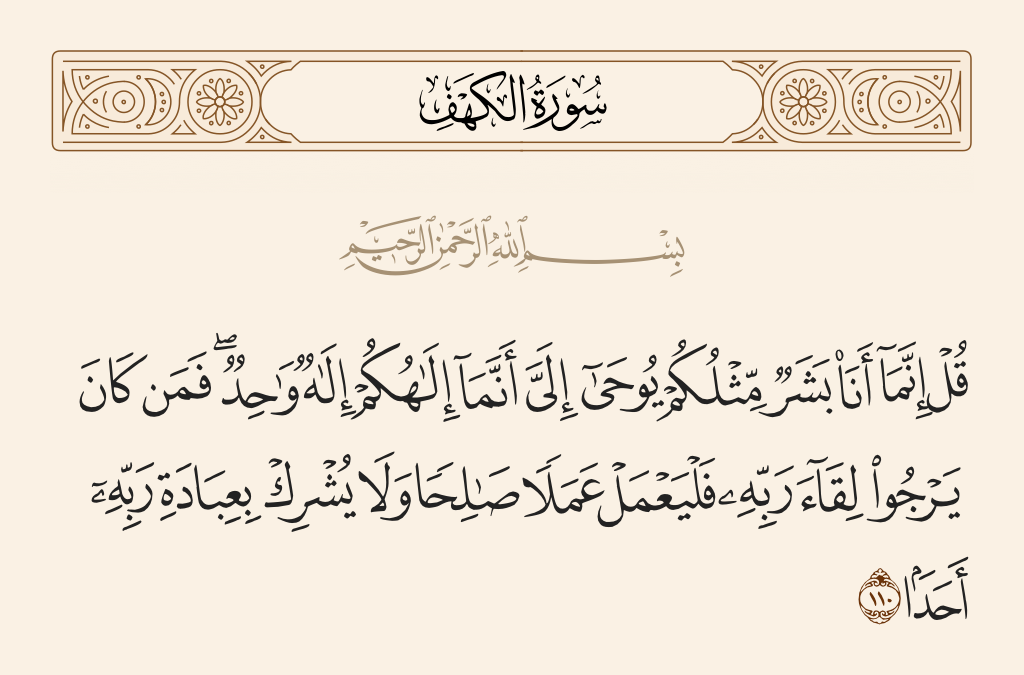 سُورَةُ الكَهۡفِ
بِسۡمِ ٱللَّهِ ٱلرَّحۡمَٰنِ ٱلرَّحِيمِ
قُلۡ إِنَّمَآ أَنَا۠ بَشَرٞ مِّثۡلُكُمۡ يُوحَىٰٓ إِلَيَّ أَنَّمَآ إِلَٰهُكُمۡ إِلَٰهٞ وَٰحِدٞۖ فَمَن كَانَ
يَرۡجُواْ لِقَآءَ رَبِّهِۦ فَلۡيَعۡمَلۡ عَمَلٗا صَٰلِحٗا وَلَا يُشۡرِكۡ بِعِبَادَةِ رَبِّهِۦٓ
أَحَدَۢا ١١٠